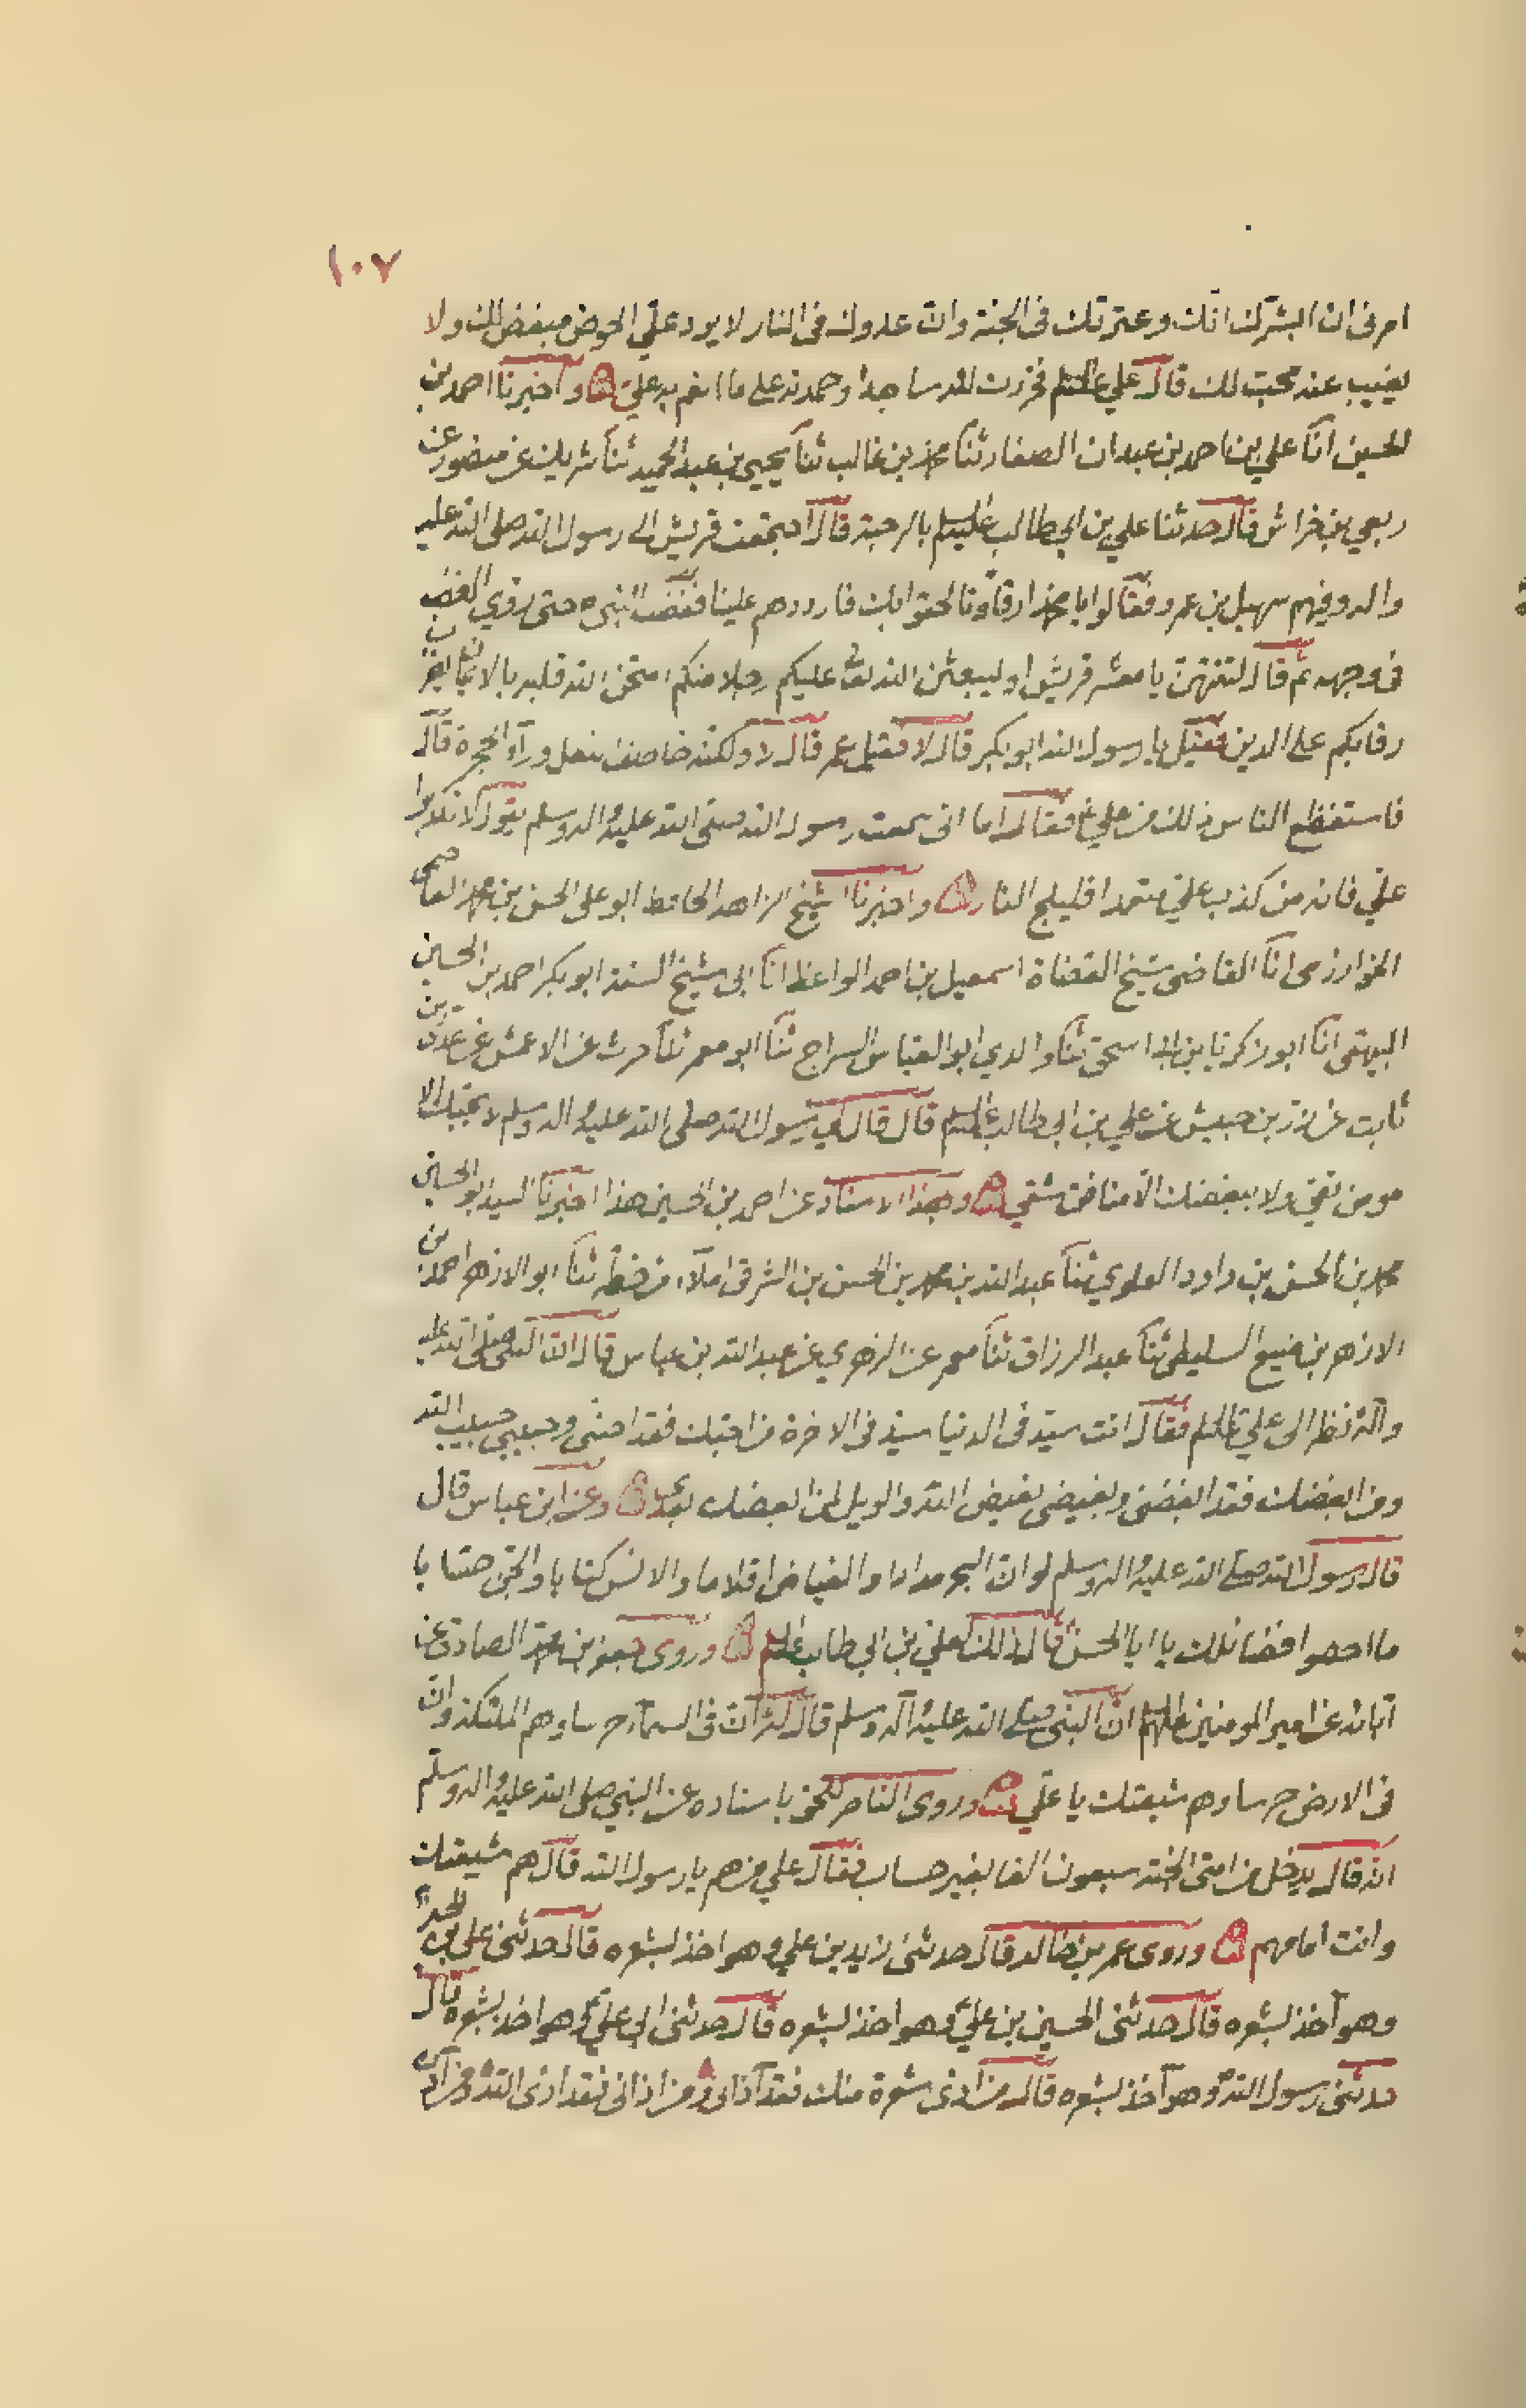 ١٠٧
امرنى ان ابشرك انك وعترتك فى الجنة وان عدوك فى النار لا يرد علّي الحوض مبغض لك ولا
يغيب عنه محب لك قال علي عليلم فخررت لله ساجدا وحمدته على ما انعم به عليّ واخبرنا احمد بن
الحسين انا علي بن احمد بن عبدان الصفار ثنا محمد بن غالب ثنا يحيى بن عبد الحميد ثنا شريك عن منصور عن
ربعي بن خراش قال حدثنا علي بن ابي طالب عليلم بالرحبة قال اجتمعت قريش الى رسول الله صلى الله عليه
واله وفيهم سهيل بن عمرو فقالوا يا محمد ارقاؤنا لحقوا بك فارددهم علينا فغضب النبي ه حتى رؤي الغضب
فى وجهه ثم قال لتنتهن يا معشر قريش او ليبعثن الله تعالى عليكم رجلا منكم امتحن الله قلبه بالايمان يضرب
رقابكم على الدين فقيل يا رسول الله ابو بكر قال لا فقيل عمر قال لا ولكنه خاصف النعل ورآء الحجرة قال
فاستفظع الناس ذلك من علي ع فقال اما انى سمعت رسول الله صلى الله عليه واله وسلم يقول لا تكذبوا
علّي فانه من كذب علّي متعمدا فليلج النار واخبرنا الشيخ الزاهد الحافظ ابو على الحسن بن محمد القاضى
الخوارزمى انا القاضى شيخ القضاة اسمعيل بن احمد الواعظ انا ابى شيخ السنة ابو بكر احمد بن الحسين
البيهقى انا ابو زكريا بن ابى اسحق ثنا والدي ابو العباس السراج ثنا ابو معمر ثنا حرث عن الاعمش عن عدى بن
ثابت عن زر بن حبيش عن علي بن ابى طالب عليلم قال قال لي رسول الله صلى الله عليه واله وسلم لا يحبك الا
مومن تقي ولا يبغضك الا منافق شقي وبهذا الاسناد عن احمد بن الحسين هذا اخبرنا السيد ابو الحسين
محمد بن الحسن بن داود العلوي ثنا عبد الله بن محمد بن الحسن بن الشرقى املآء من حفظه ثنا ابو الازهر احمد بن
الازهر بن منيع السليطى ثنا عبد الرزاق ثنا معمر عن الزهري عن عبد الله بن عباس قال ان النبى صلى الله عليه
وآله نظر الى علي عليلم فقال انت سيّد فى الدنيا سيّد فى الاخرة من احبك فقد احبنى وحبيبي حبيب الله
ومن ابغضك فقد ابغضنى وبغيضى بغيض الله والويل لمن ابغضك بعدى وعن ابن عباس قال
قال رسول الله صلى الله عليه واله وسلم لو ان البحر مدادا والغياض اقلاما والانس كتابا والجن حسابا
ما احصوا فضائلك يا ابا الحسن قال ذلك لعلي بن ابي طالب عليلم وروى جعفر بن محمد الصادق عن
آبائه عن امير المومنين عليهلم انّ النبى صلى الله عليه وآله وسلم قال لله آن فى السمآء حرسا وهم الملئكة وان
فى الارض حرسا وهم شيعتك يا علّي وروى الناصر للحق باسناده عن النبي صلى الله عليه واله وسلم
انه قال يدخل من امتى الجنة سبعون الفا بغير حساب فقال علي من هم يا رسول الله قال هم شيعتك
وانت امامهم وروى عمر بن خالد قال حدثنى زيد بن علي وهو اخذ بشعره قال حدثنى على بن الحسين
وهو آخذ بشعره قال حدثنى الحسين بن علي وهو اخذ بشعره قال حدثنى ابى علي وهو اخذ بشعره قال
حدثنى رسول الله وهو آخذ بشعره قال من اذى شعرة منك فقد آذانى ومن اذانى فقد اذى الله ومن آذى